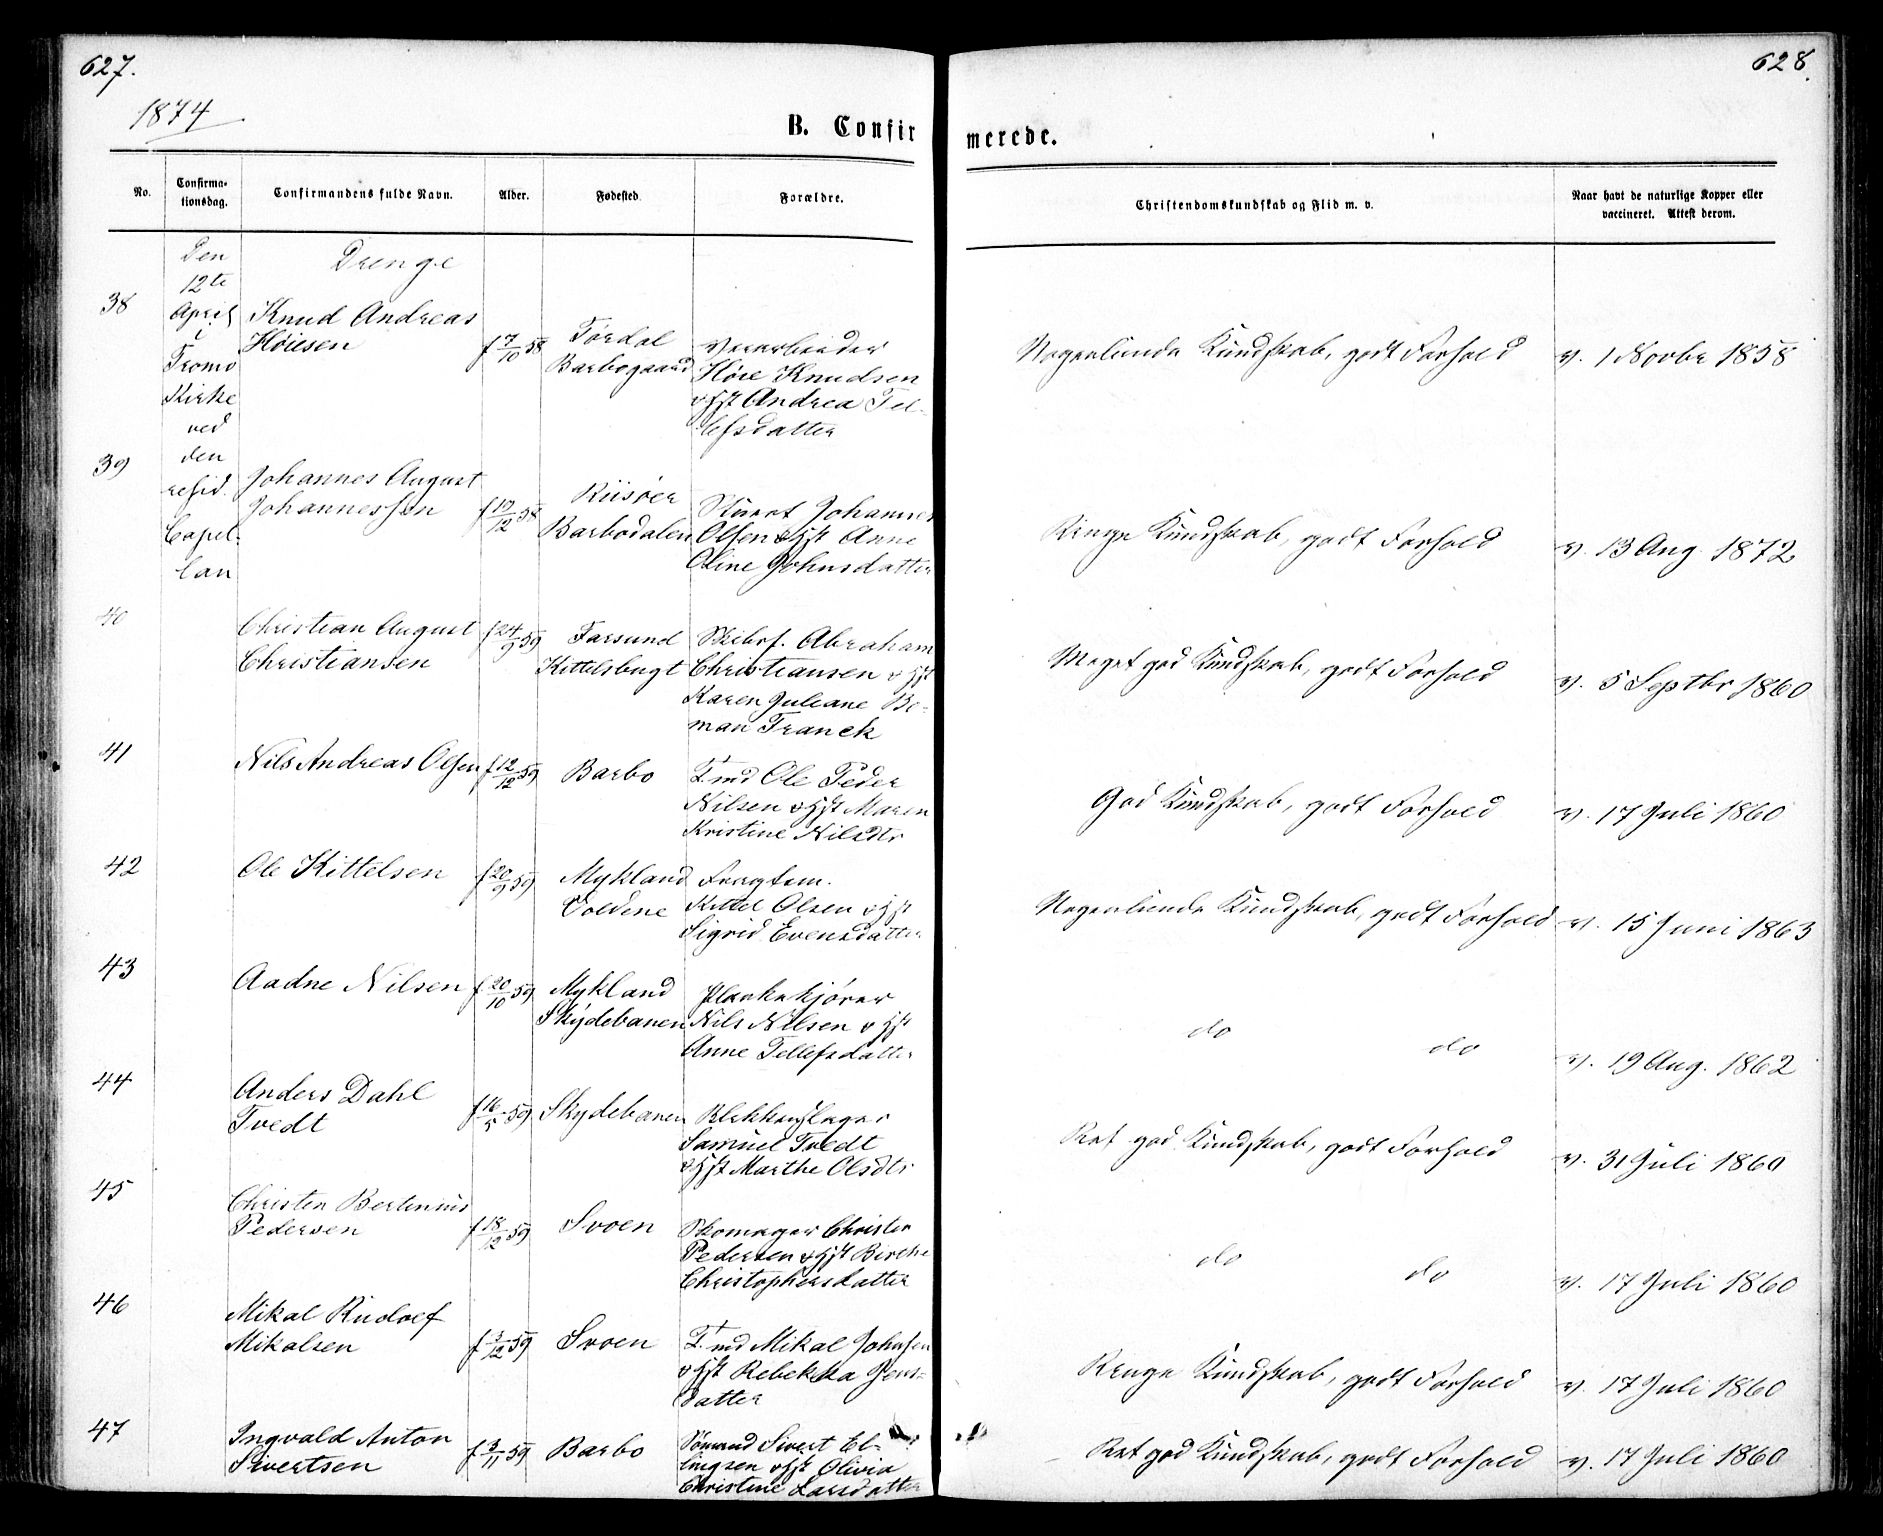 627.
628.
1874
B. Confir
merede.
No.
Confirma-
tionsdag.
Confirmandens fulde Navn.
Alder.
Fødested
Forældre.
Christendomskundskab og Flid m. v.
Naar havt de naturlige Kopper eller
vaccineret. Attest derom.
Den
12te
April
i
Tromø
Kirke
ved
den
resid.
Capel-
lan
Drenge
38
Knud Andreas
Høiesen
f 7/10 58
Tørdal
Barbogaard
Høie Knudsen
og Hst Andrea Tel-
lefsdatter
Nogenlunde Kundskab, godt Forhold
v. 1 Novbr 1858
39
Johannes August
Johannessen
f 10/12 58
Riisøer
Barbodalen
Stuert Johannes
Olsen & Hst Anne
Oline Johnsdatter
Ringe Kundskab, godt Forhold
v. 13 Aug. 1872
40
Christian August
Christiansen
f 24/9 59
Farsund
Kittelsbugt
Skibsf. Abraham
Christiansen & Hst
Karen Juliane Bo-
man Franck
Meget god Kundskab, godt Forhold
v. 5 Septbr 1860
41
Nils Andreas Olsen
f 12/12 59
Barbo
T. md Ole Peder
Nilsen & Hst Maren
Kristine Nilsdtr
God Kundskab, godt Forhold
v. 17 Juli 1860
42
Ole Kittelsen
f 20/9 59
Mykland
Voldene
Fragtem.
Kittel Olsen & Hst
Sigrid Evensdatter
Nogenlunde Kundskab, godt Forhold
v. 15 Juni 1863
43
Aadne Nilsen
f 20/10 59
Mykland
Skydebanen
Plankekjører
Nils Nilsen & Hst
Anne Tellefsdatter
do
do
v. 19 Aug. 1862
44
Anders Dahl
Tvedt
f 16/5 59
Skydebanen
Blikkenslager
Samuel Tvedt
& Hst Marthe Olsdtr
Ret god Kundskab, godt Forhold
v. 31 Juli 1860
45
Christen Bertinius
Pedersen
f 18/12 59
Svoen
Skomager Christen
Pedersen & Hst Birthe
Christophersdatter
do
do
v. 17 Juli 1860
46
Mikal Rudolf
Mikalsen
f 3/12 59
Svoen
T. md Mikal Johnsen
& Hst Rebekka Jens-
datter
Ringe Kundskab, godt Forhold
v. 17 Juli 1860
47
Ingvald Anton
Sivertsen
f 3/11 59
Barbo
Sømand Sivert El-
lingsen & Hst Olivia
Christine Larsdatter
Ret god Kundskab, godt Forhold
v. 17 Juli 1860